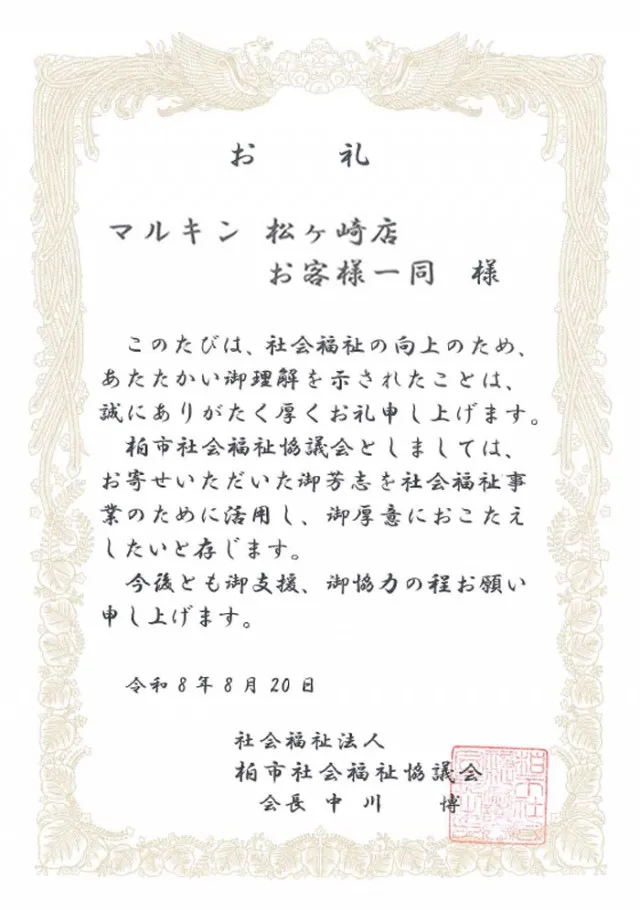 お 礼
マルキン 松ヶ崎店
お客様一同 様
このたびは、社会福祉の向上のため、
あたたかい御理解を示されたことは、
誠にありがたく厚くお礼申し上げます。
柏市社会福祉協議会としましては、
お寄せいただいた御芳志を社会福祉事
業のために活用し、御厚意におこたえ
したいと存じます。
今後とも御支援、御協力の程お願い
申し上げます。
令和8年8月20日
社会福祉法人
柏市社会福祉協議会
会長 中川 博